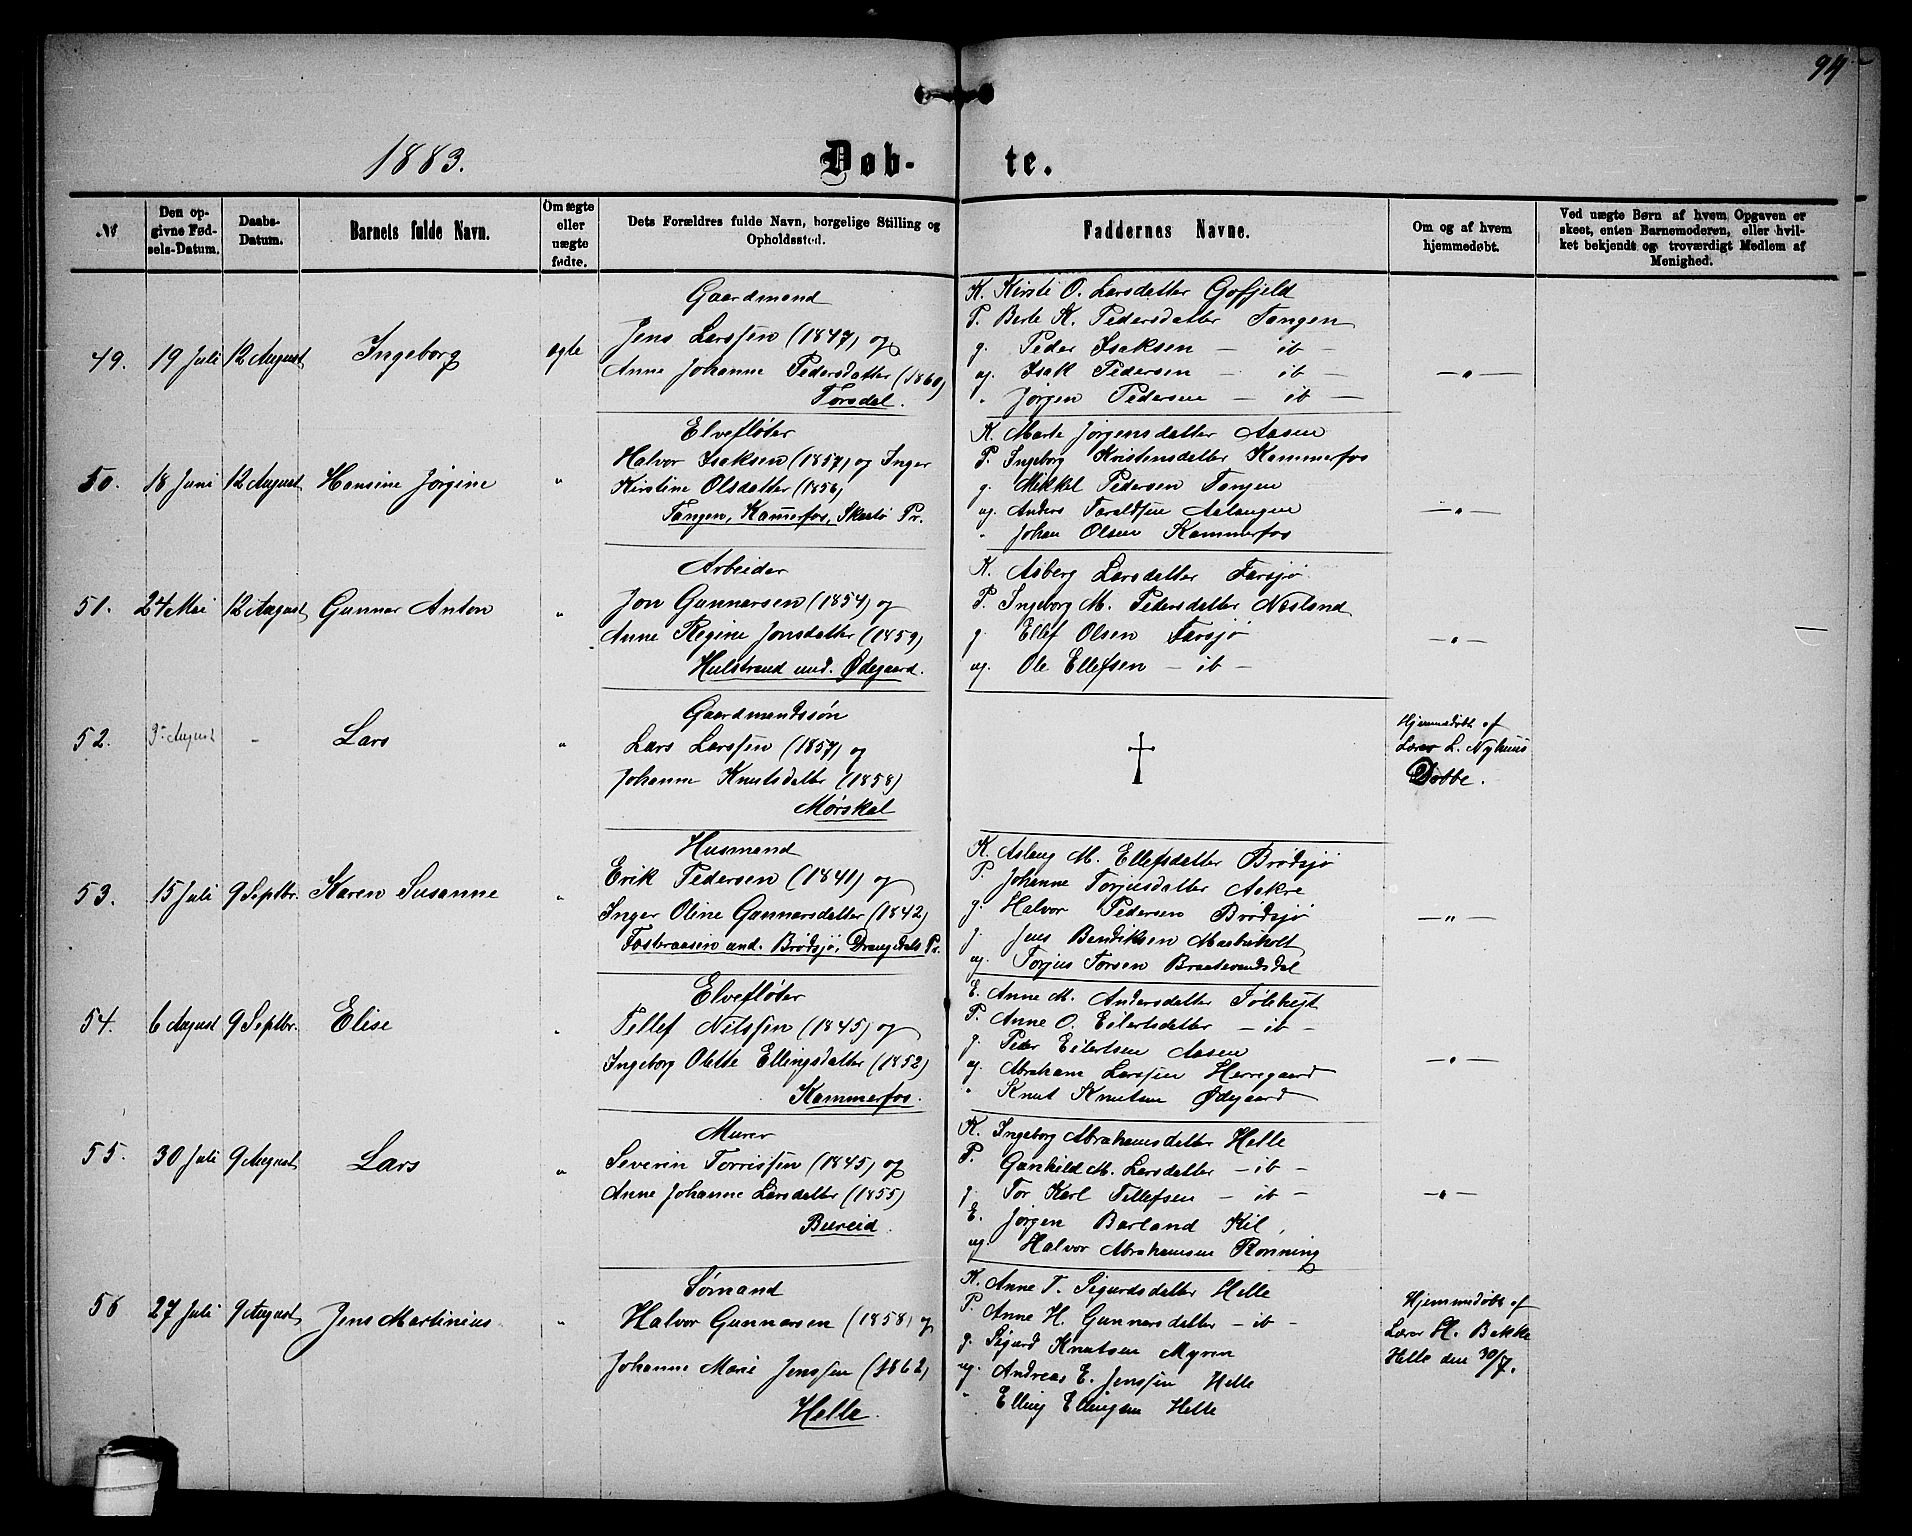 94
1883.
Døb- te.
№
Den opgivne Fødsels-Datum.
Daabs-Datum.
Barnets fulde Navn.
Om ægte eller uægte fødte.
Dets Forældres fulde Navn, borgelige Stilling og Opholdssted.
Faddernes Navne.
Om og af hvem hjemmedøbt.
Ved uægte Børn af hvem Opgaven er skeet, enten Barnemoderen, eller hvilket bekjendt og troværdigt Medlem af Menighed.
49. 19 Juli 12 August Ingeborg ægte
Gaardmand
Jens Larssen (1847) og
Anne Johanne Pedersdatter (1860)
Torsdal.
K. Kirsti O. Larsdatter Gofjeld
P. Berte K. Pedersdatter Tangen
g. Peder Isaksen — ib —
ug. Isak Pedersen — ib —
" Jørgen Pedersen — ib —
— " —
50. 18 Juni 12 August Hansine Jørgine "
Elvefløter
Halvor Isaksen (1857) og Inger
Kirstine Olsdatter (1856)
Tangen, Kammerfos, Skaatø Pr.
K. Marte Jørgensdatter Aasen
P. Ingeborg Kristensdatter Kammerfos
g. Mikkel Pedersen Tangen
ug. Anders Taraldsen Aalangen
" Johan Olsen Kammerfos
— " —
51. 24 Mai 12 August Gunnar Anton "
Arbeider
Jon Gunnarsen (1854) og
Anne Regine Jonsdatter (1859)
Hulstrand und. Ødegaard.
K. Asberg Larsdatter Farsjø
P. Ingeborg M. Pedersdatter Næsland
g. Ellef Olsen Farsjø
ug. Ole Ellefsen — ib —
— " —
52. 3 August - Lars "
Gaardmandssøn
Lars Larssen (1857) og
Johanne Knutsdatter (1858)
Mørskal
†
Hjemmedøbt af
Lærer L. Nyhuus
Dobbe.
53. 15 Juli 9 Septbr. Karen Susanne "
Husmand
Erik Pedersen (1841) og
Inger Oline Gunnarsdatter (1842)
Fosteraasen und. Brødsjø, Drangedals Pr.
K. Aslaug M. Ellefsdatter Brødsjø
P. Johanne Torjusdatter Aakre
g. Halvor Pedersen Brødsjø
g. Jens Bendiksen
ug. Torjus Torsen Braatevandsdal
— " —
54. 6 August 9 Septbr. Elise "
Elvefløter
Tellef Nilssen (1845) og
Ingeborg Olette Ellingsdatter (1852)
Kammerfos.
E. Anne M. Andersdatter
P. Anne O. Eilertsdatter — ib —
g. Peder Eilertsen Aasen
ug. Abraham Larssen Herregaard
" Knut Knutsen Ødegaard
— " —
55. 30 Juli 9 August Lars "
Murer
Severin Torrissen (1845) og
Anne Johanne Larsdatter (1855)
Bureid.
K. Ingeborg Abrahamsdatter Helle
P. Gunhild M. Larsdatter — ib —
g. Tor Karl Tellefsen — ib —
E. Jørgen Barland Kil
ug. Halvor Abrahamsen Rønning
— " —
56 27 Juli 9 August Jens Martinius "
Sømand
Halvor Gunnarsen (1858) og
Johanne Marie Jenssen (1862)
Helle.
K. Anne T. Sigurdsdatter Helle
P. Anne H. Gunnarsdatter — ib —
g. Sigurd Knutsen Myren
ug. Andreas E. Jenssen Helle
" Elling Ellingsen Helle
Hjemmedøbt af
Lærer H. Bakke
Helle den 30/7.